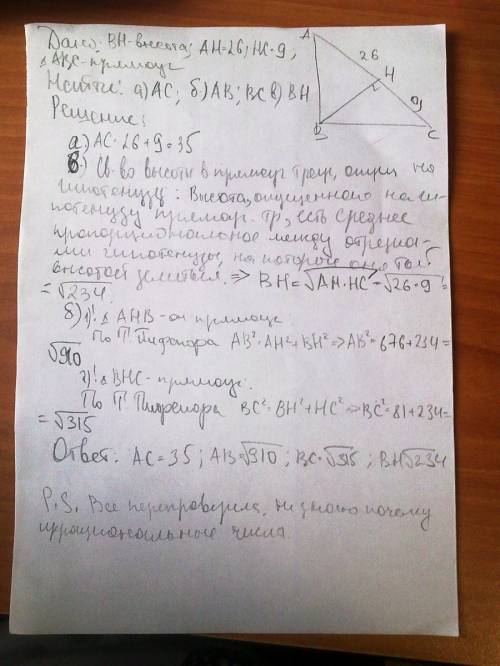 Дано: BH-высота; AH=26; HC=9;
△ABC-прямоуг
Найти: а) AC; б) AB; BC в) BH
Решение:
A
26
H
9
B
C
а) AC=26+9=35
в) Св-во высоты в прямоуг треуг, опущ на
гипотенузу: Высота, опущенного на ги-
потенузу прямоуг. тр, есть среднее
пропорциональное между отрезка-
ми гипотенузы, на которые она той
высотой делиться. => BH=√AH·HC=√26·9=
=√234
б) 1)! △ AHB-он прямоуг
По Т Пифагора AB²=AH²+BH²=>AB²=676+234=
√910
2)! △ BHC-прямоуг.
По Т Пифагора BC²=BH²+HC²=>BC²=81+234=
=√315
Ответ: AC=35; AB=√910; BC=√315; BH√234
P.S. Все перепроверила, не знаю почему
иррациональные числа.